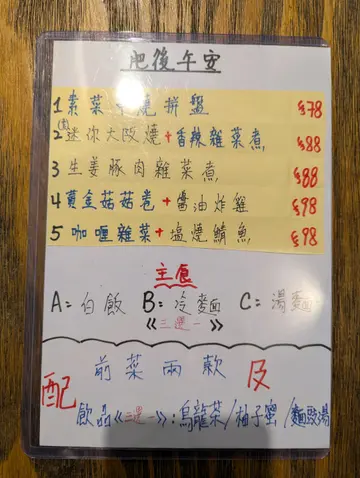 肥後午安
1 素菜 燒拼盤 $78
2(素)迷你大阪燒+香辣雜菜煮 $88
3 生姜豚肉雜菜煮 $88
4 黄金菇菇卷+醬油炸雞 $98
5 咖喱雜菜+塩燒鯖魚 $98
主食
A=白飯 B=冷麵 C=湯麵
《三選一》
前菜兩款
配 及
飲品《三選一》:烏龍茶/柚子蜜/麵豉湯